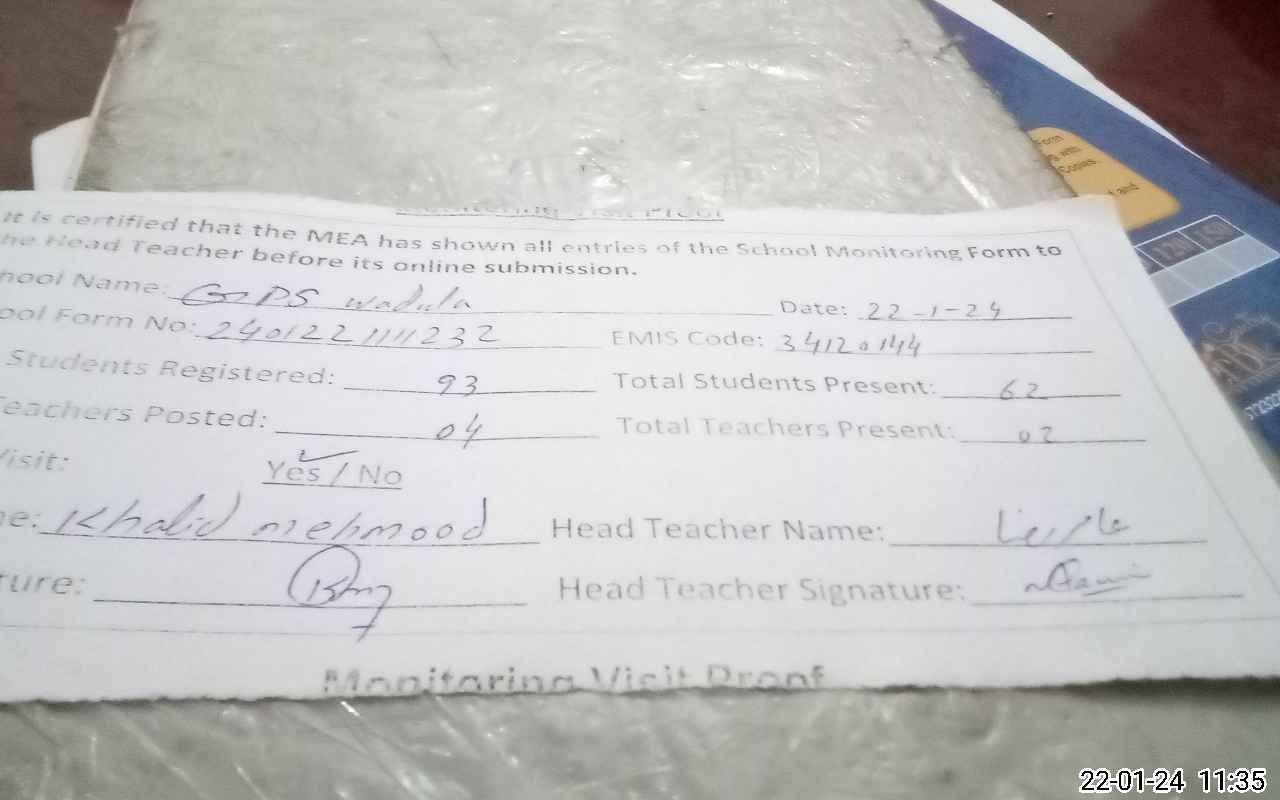 It is certified that the MEA has shown all entries of the School Monitoring Form to
he Head Teacher before its online submission.
hool Name: GPS wadula Date: 22-1-24
ool Form No: 240122111232 EMIS Code: 34120144
Students Registered: 93 Total Students Present: 62
Teachers Posted: 04 Total Teachers Present: 02
Visit: Yes / No
e: Khalid mehmood Head Teacher Name:
ture: Head Teacher Signature:
Monitoring Visit Proof
Form
with
Copies
and
120 150
22-01-24 11:35